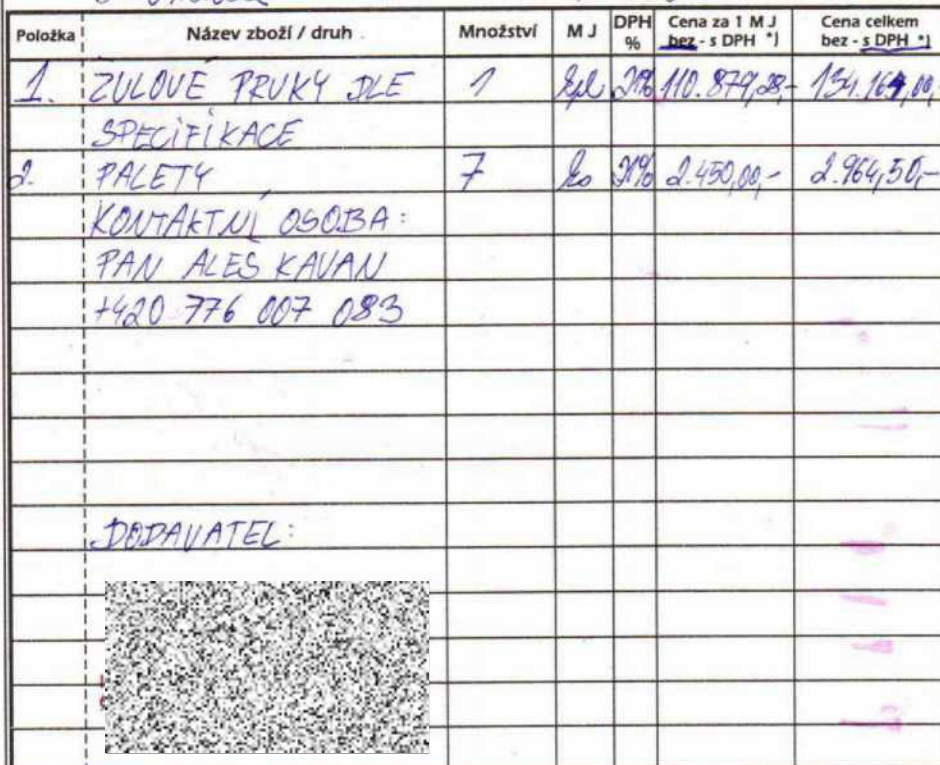 Položka Název zboží / druh Množství M J DPH % Cena za 1 M J bez - s DPH *) Cena celkem bez - s DPH *)
1. ŽULOVÉ PRVKY DLE 1 kpl 21% 110.879,28,- 134.164,00,-
SPECIFIKACE
2. PALETY 7 ks 21% 2.450,00,- 2.964,50,-
KONTAKTNÍ OSOBA:
PAN ALES KAVAN
+420 776 007 083
DODAVATEL: